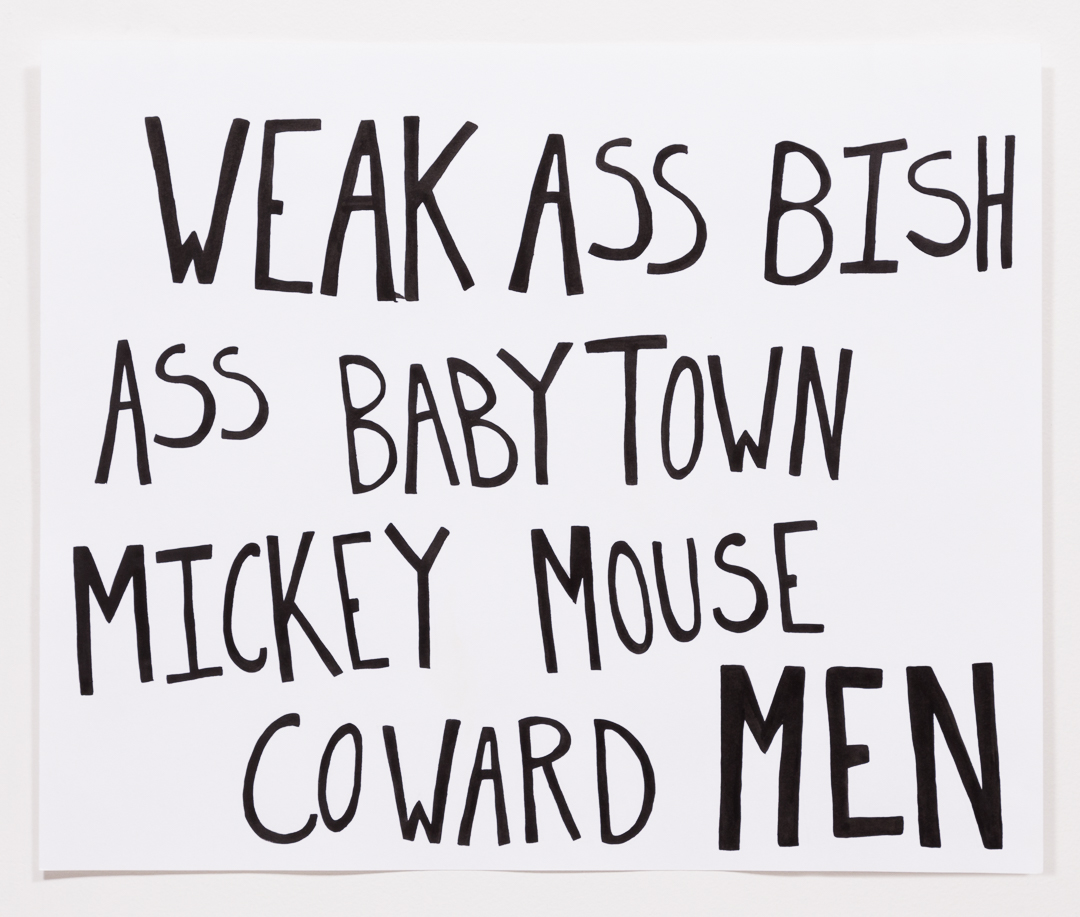 WEAK ASS BISH
ASS BABY TOWN
MICKEY MOUSE
COWARD MEN